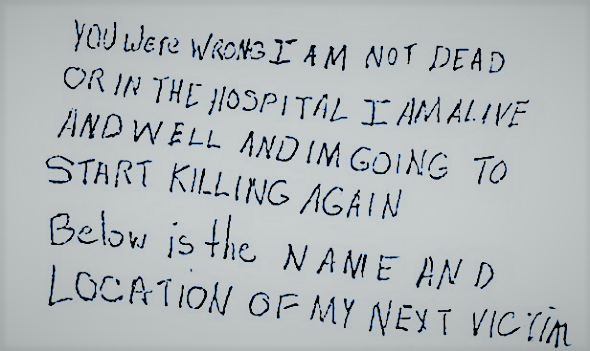 YOU Were WRONG I AM NOT DEAD
OR IN THE HOSPITAL I AM ALIVE
AND WELL AND IM GOING TO
START KILLING AGAIN
Below is the NAME AND
LOCATION OF MY NEXT VICTIM